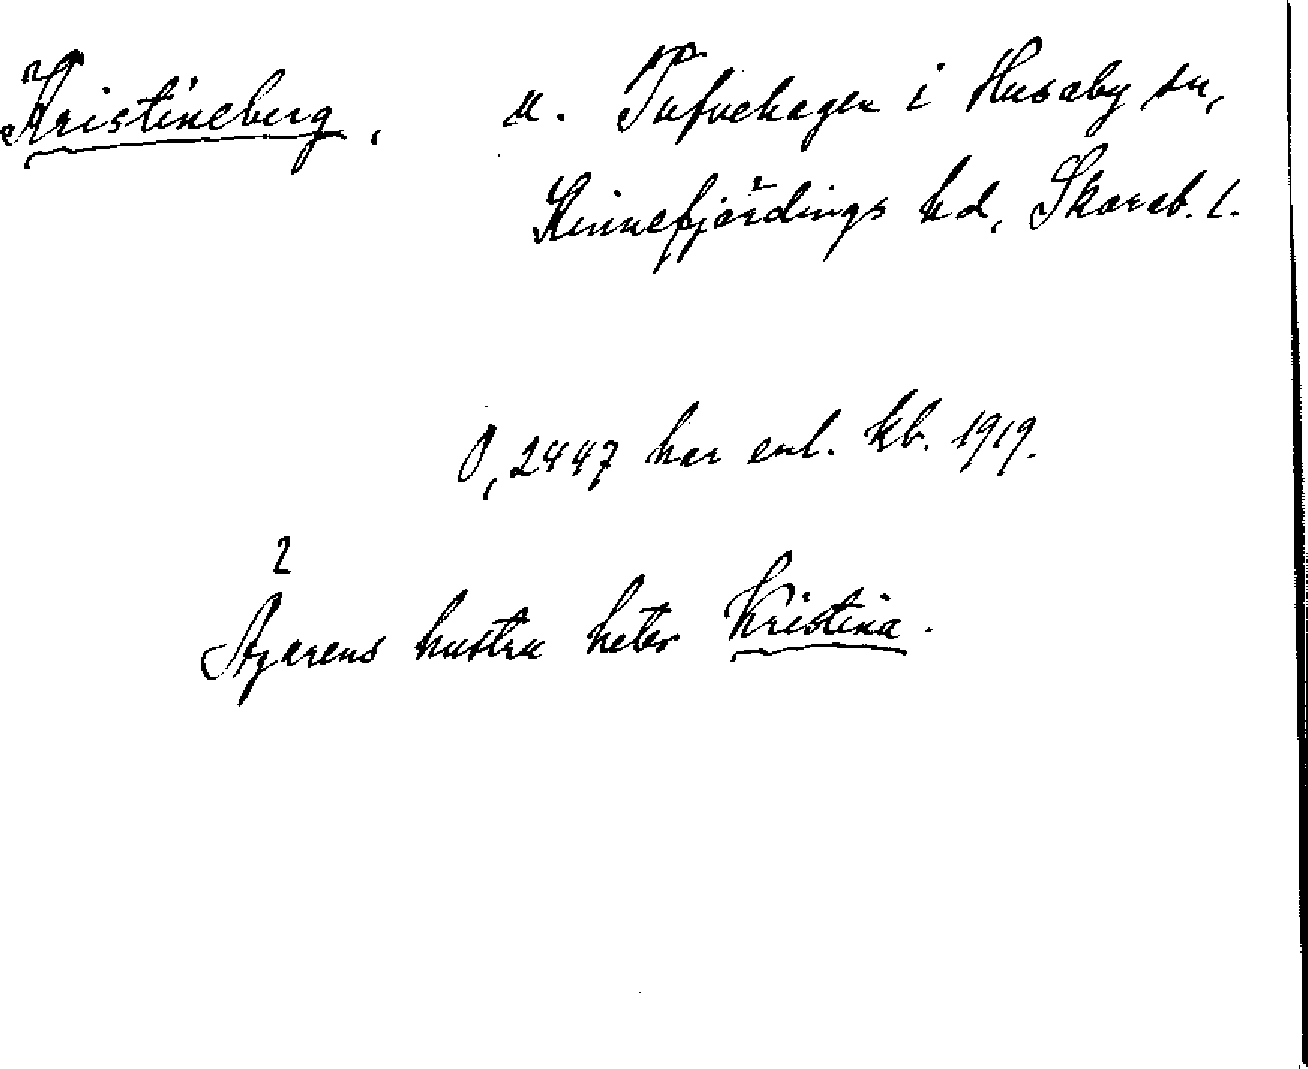 Kristineberg, u. Tufvehagen i Husaby sn,
Kinnefjärdings hd, Skarab. l.
0,2447 har enl. kb. 1919.
Ägarens hustru heter Kristina.